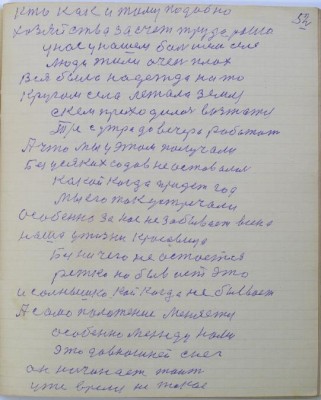 52
кто как и тому подобно
хозяйства за счет трудового
у нас у нашем большим селе
люди жили очен плох
Вся была надежда на то
Кругом села лежала земля
с кем приходилос
с утра до вечера работат
А что мы у этом получали
Без усяких содов не оставалис
Какой когда придет год
Мы его так устречали
Особенно за нас не забывает
наша у жизни Красавица
Бу ничего не остается
редко но бывает это
и солнышко кой когда не бывает
А само положение меняется
особенно между нами
Это давношней снег
он начинает таит
уже время не такое